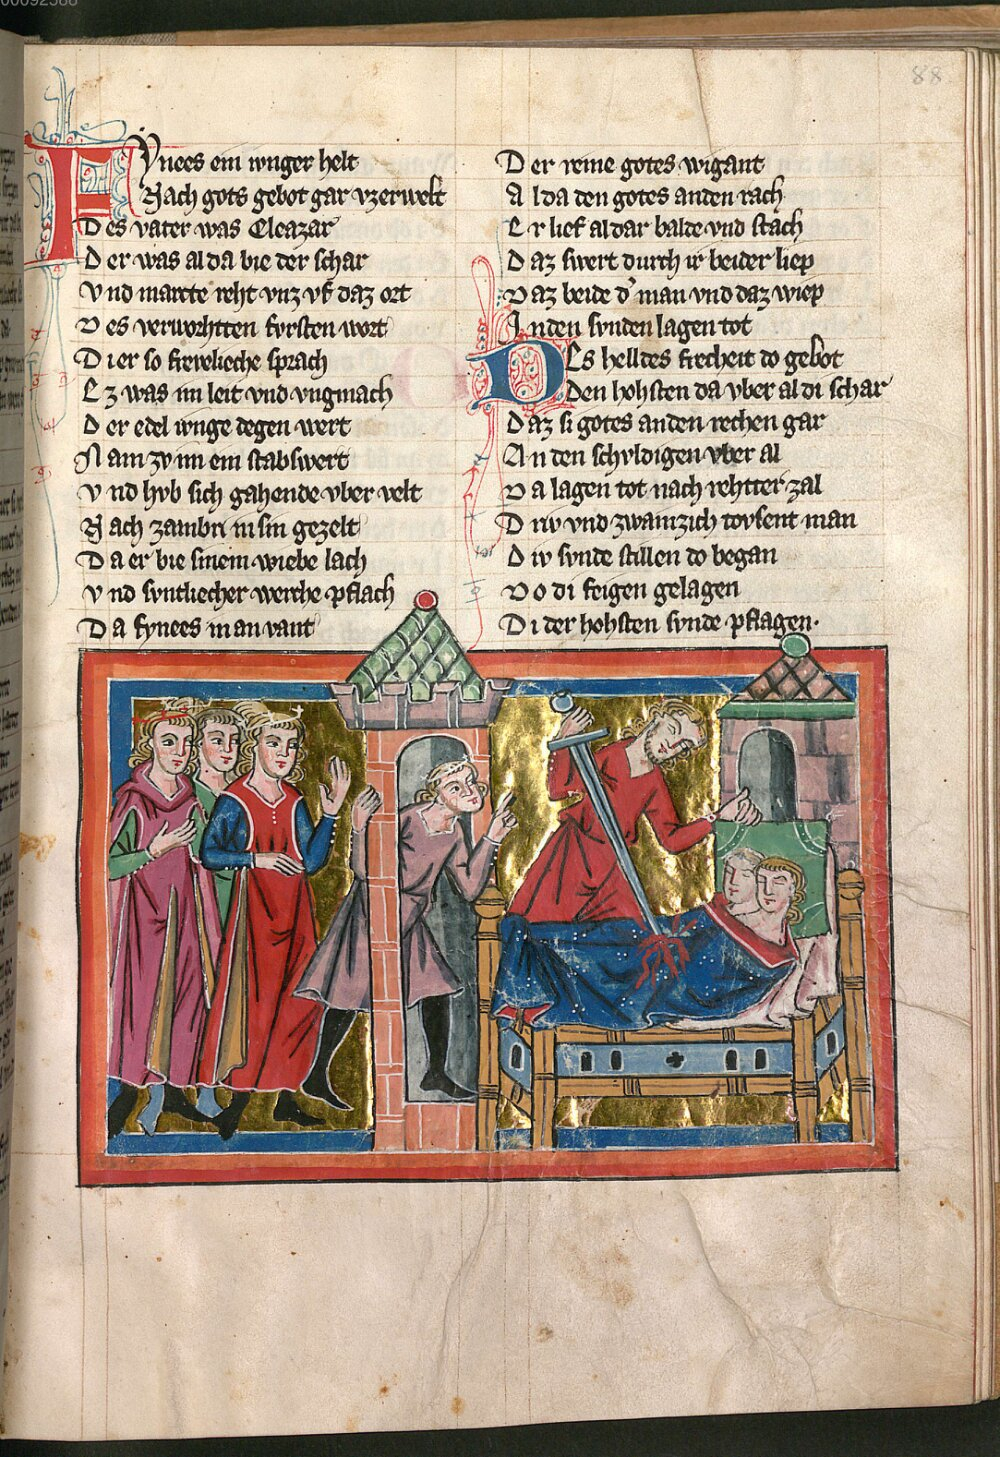 00092588
88
Fynees ein iunger helt
Nach gots gebot gar vzerwelt
Des vater was Eleazar
Der was alda bie der schar
Vnd marcte reht vnz vf daz ort
Des verworhtten fvrsten wort
Di er so frevelieche sprach
Ez was im leit vnd vngmach
Der edel iunge degen wert
Nam zv im ein stabswert
Vnd hvb sich gahende vber velt
Nach zambri in sin gezelt
Da er bie sinem wiebe lach
Vnd svntliecher werche pflach
Da fynees in an vant
Der reine gotes wigant
Alda den gotes anden rach
Er lief aldar balde vnd stach
Daz swert durch ir beider liep
Daz beide d' man vnd daz wiep
In den svnden lagen tot
Des helldes frecheit do gebot
Den hohsten da vber al di schar
Daz si gotes anden rechen gar
An den schvldigen vber al
Da lagen tot nach rehtter zal
Driv vnd zwainzich tovsent man
Div svnde stillen do began
Do di feigen gelagen
Di der hohsten svnde pflagen.